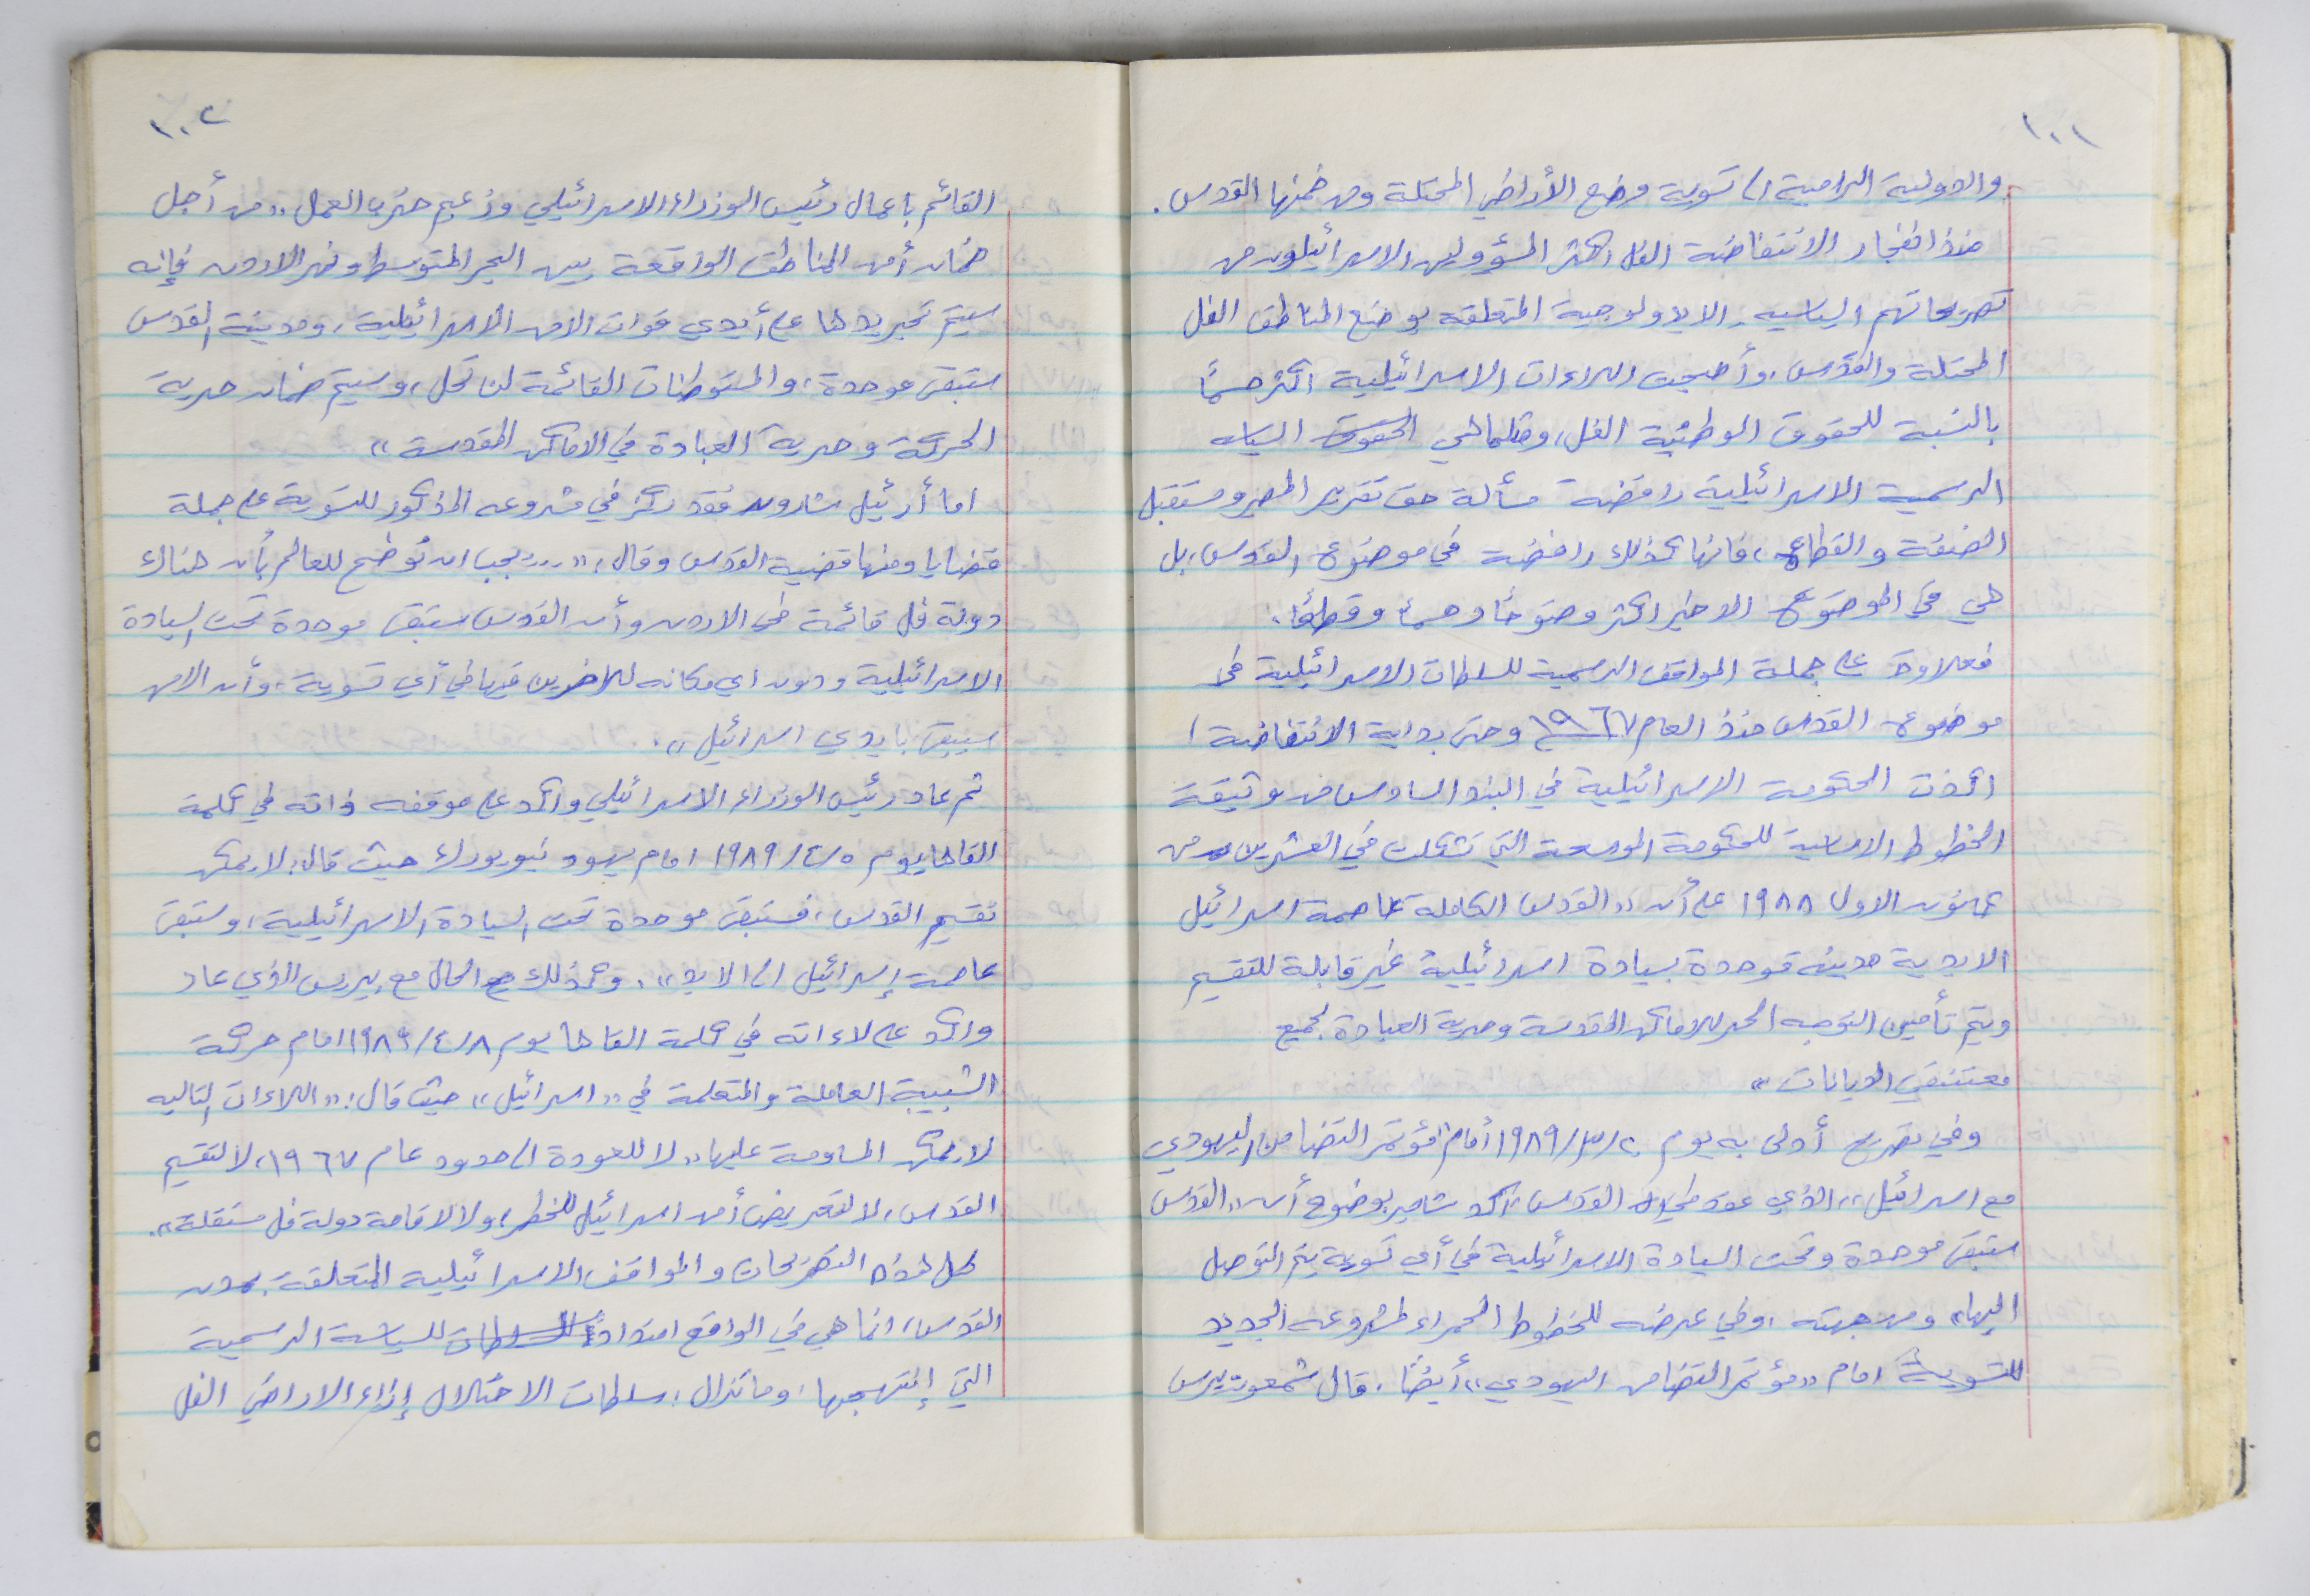 ١٠١
والدولية الرامية الى تسوية وضع الأراضي المحتلة ومن ضمنها القدس.
منذ انفجار الانتفاضة الفل اكثر المسؤولين الاسرائيليون من
تصريحاتهم السياسيه والايدولوجية المتعلقه بوضع المناطق الفل
المحتلة والقدس، وأصبحت اللاءات الاسرائيلية اكثر حسمًا
بالنسبة للحقوق الوطنية الفل، ومثلما هي السياسه
الرسمية الاسرائيلية رافضة مسألة حق تقرير المصير ومستقبل
الضفة والقطاع، فانها كذلك رافضة في موضوع القدس، بل
هي في الموضوع الاخير اكثر وضوحًا وحسمًا وقطعًا.
فعلاوة على جملة المواقف الرسمية للسلطات الاسرائيلية في
موضوع القدس منذ العام ١٩٦٧ وحتى بداية الانتفاضة،
اكدت الحكومة الاسرائيلية في البند السادس من وثيقة
الخطوط الاساسية للحكومة الموسعة التي تشكلت في العشرين من
كانون الاول ١٩٨٨ على أن "القدس الكاملة عاصمة اسرائيل
الابدية مدينة موحدة بسيادة اسرائيلية غير قابلة للتقسيم
ويتم تأمين التوجه الحر للاماكن المقدسة وحرية العبادة لجميع
معتنقي الديانات"
وفي تصريح أدلى به يوم ٢٠/٣/١٩٨٩ أمام "مؤتمر التضامن اليهودي
مع اسرائيل"، الذي عقد في القدس، اكد شامير بوضوح أن "القدس
ستبقى موحدة وتحت السيادة الاسرائيلية في أي تسوية يتم التوصل
اليها" ومن جهته، وفي عرضه للخطوط الحمراء لمشروعه الجديد
للتسوية امام "مؤتمر التضامن اليهودي" أيضًا، قال شمعون بيرس
١٠٢
القائم باعمال رئيس الوزراء الاسرائيلي وزعيم حزب العمل "من أجل
ضمان أمن المناطق الواقعة بين البحر المتوسط ونهر الاردن فإنه
سيتم تجريدها على أيدي قوات الامن الاسرائيلية، ومدينة القدس
ستبقى موحدة، والمستوطنات القائمة لن تحل، وسيتم ضمان حرية
الحركة وحرية العبادة في الاماكن المقدسة"
اما أرئيل شارون فقد ركز في مشروعه المذكور للتسوية على جملة
قضايا ومنها قضية القدس وقال: "... يجب ان نوضح للعالم بأن هناك
دولة فل قائمة في الاردن وأن القدس ستبقى موحدة تحت السيادة
الاسرائيلية ودون اي مكانه للاخرين فيها في أي تسوية، وأن الامن
سيبقى بايدي اسرائيل".
ثم عاد رئيس الوزراء الاسرائيلي واكد على موقفه ذاته في كلمة
القاها يوم ٥/٤/١٩٨٩ امام يهود نيويورك حيث قال: لا يمكن
تقسيم القدس، فستبقى موحدة تحت السيادة الاسرائيلية، وستبقى
عاصمة إسرائيل الى الابد"، وكذلك الحال مع بيرس الذي عاد
واكد على لاءاته في كلمة القاها يوم ٨/٤/١٩٨٩ امام حركة
الشبيبة العاملة والمتعلمة في "اسرائيل" حيث قال: "اللاءات التاليه
لا يمكن المساومة عليها "لا للعودة الى حدود عام ١٩٦٧، لا لتقسيم
القدس، لا لتعريض أمن اسرائيل للخطر، ولا لاقامة دولة فل مستقلة".
كل هذه التصريحات والمواقف الاسرائيلية المتعلقة بمدن
القدس، انما هي في الواقع امتدادًا للسياسة الرسمية
التي إنتهجها، وما تزال، سلطات الاحتلال إزاء الاراضي الفل